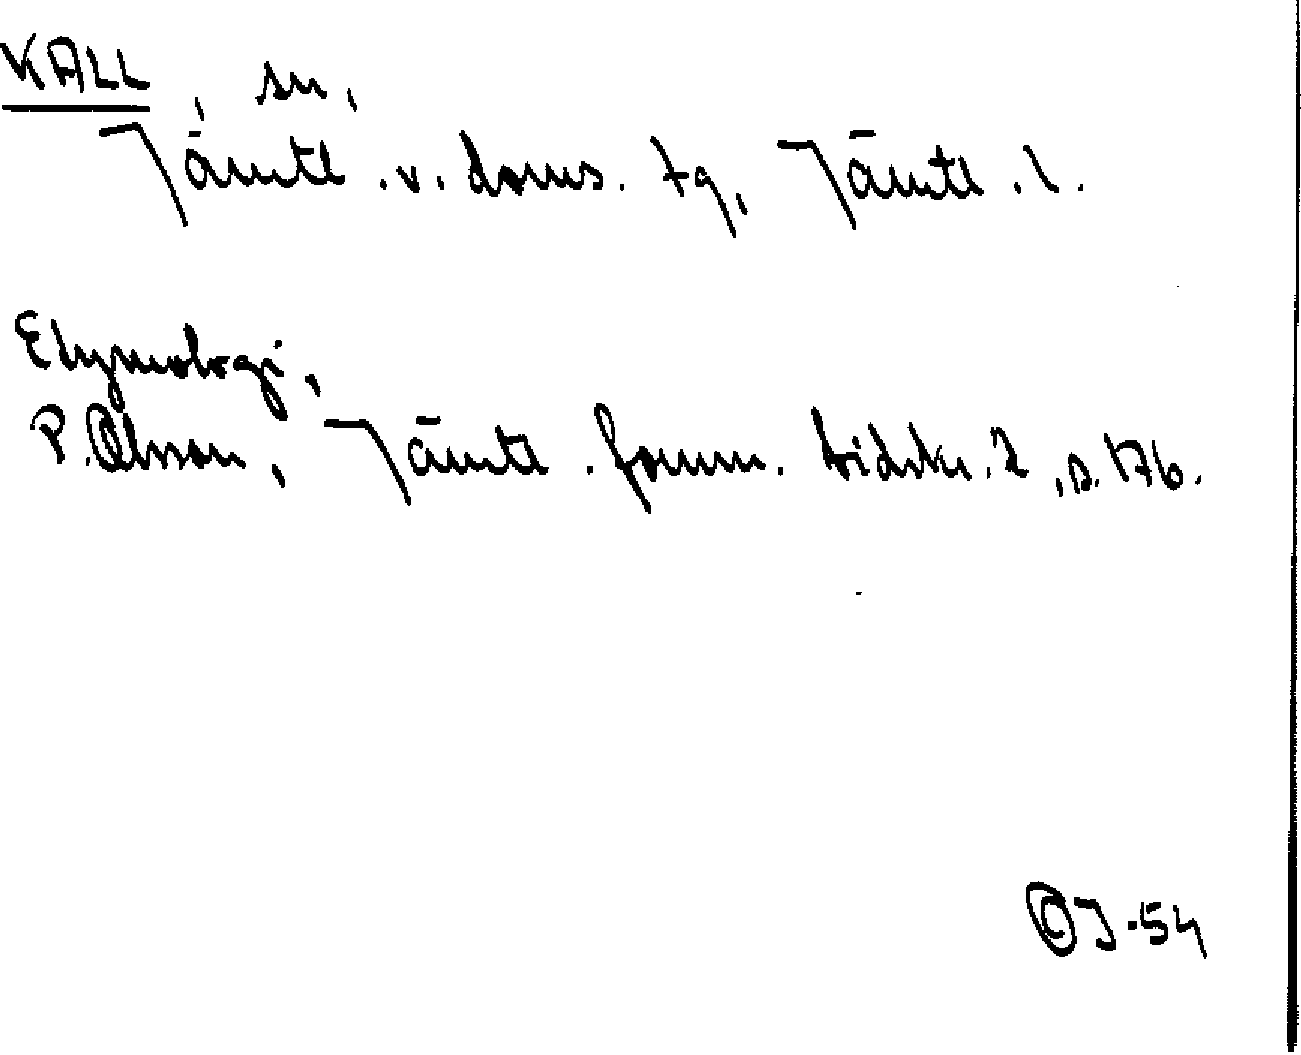 KALL, sn,
Jämtl. v. doms. tg, Jämtl. l.
Etymologi,
P. Olsson, Jämtl. fornm. tidskr. 2, s. 176.
OJ-54